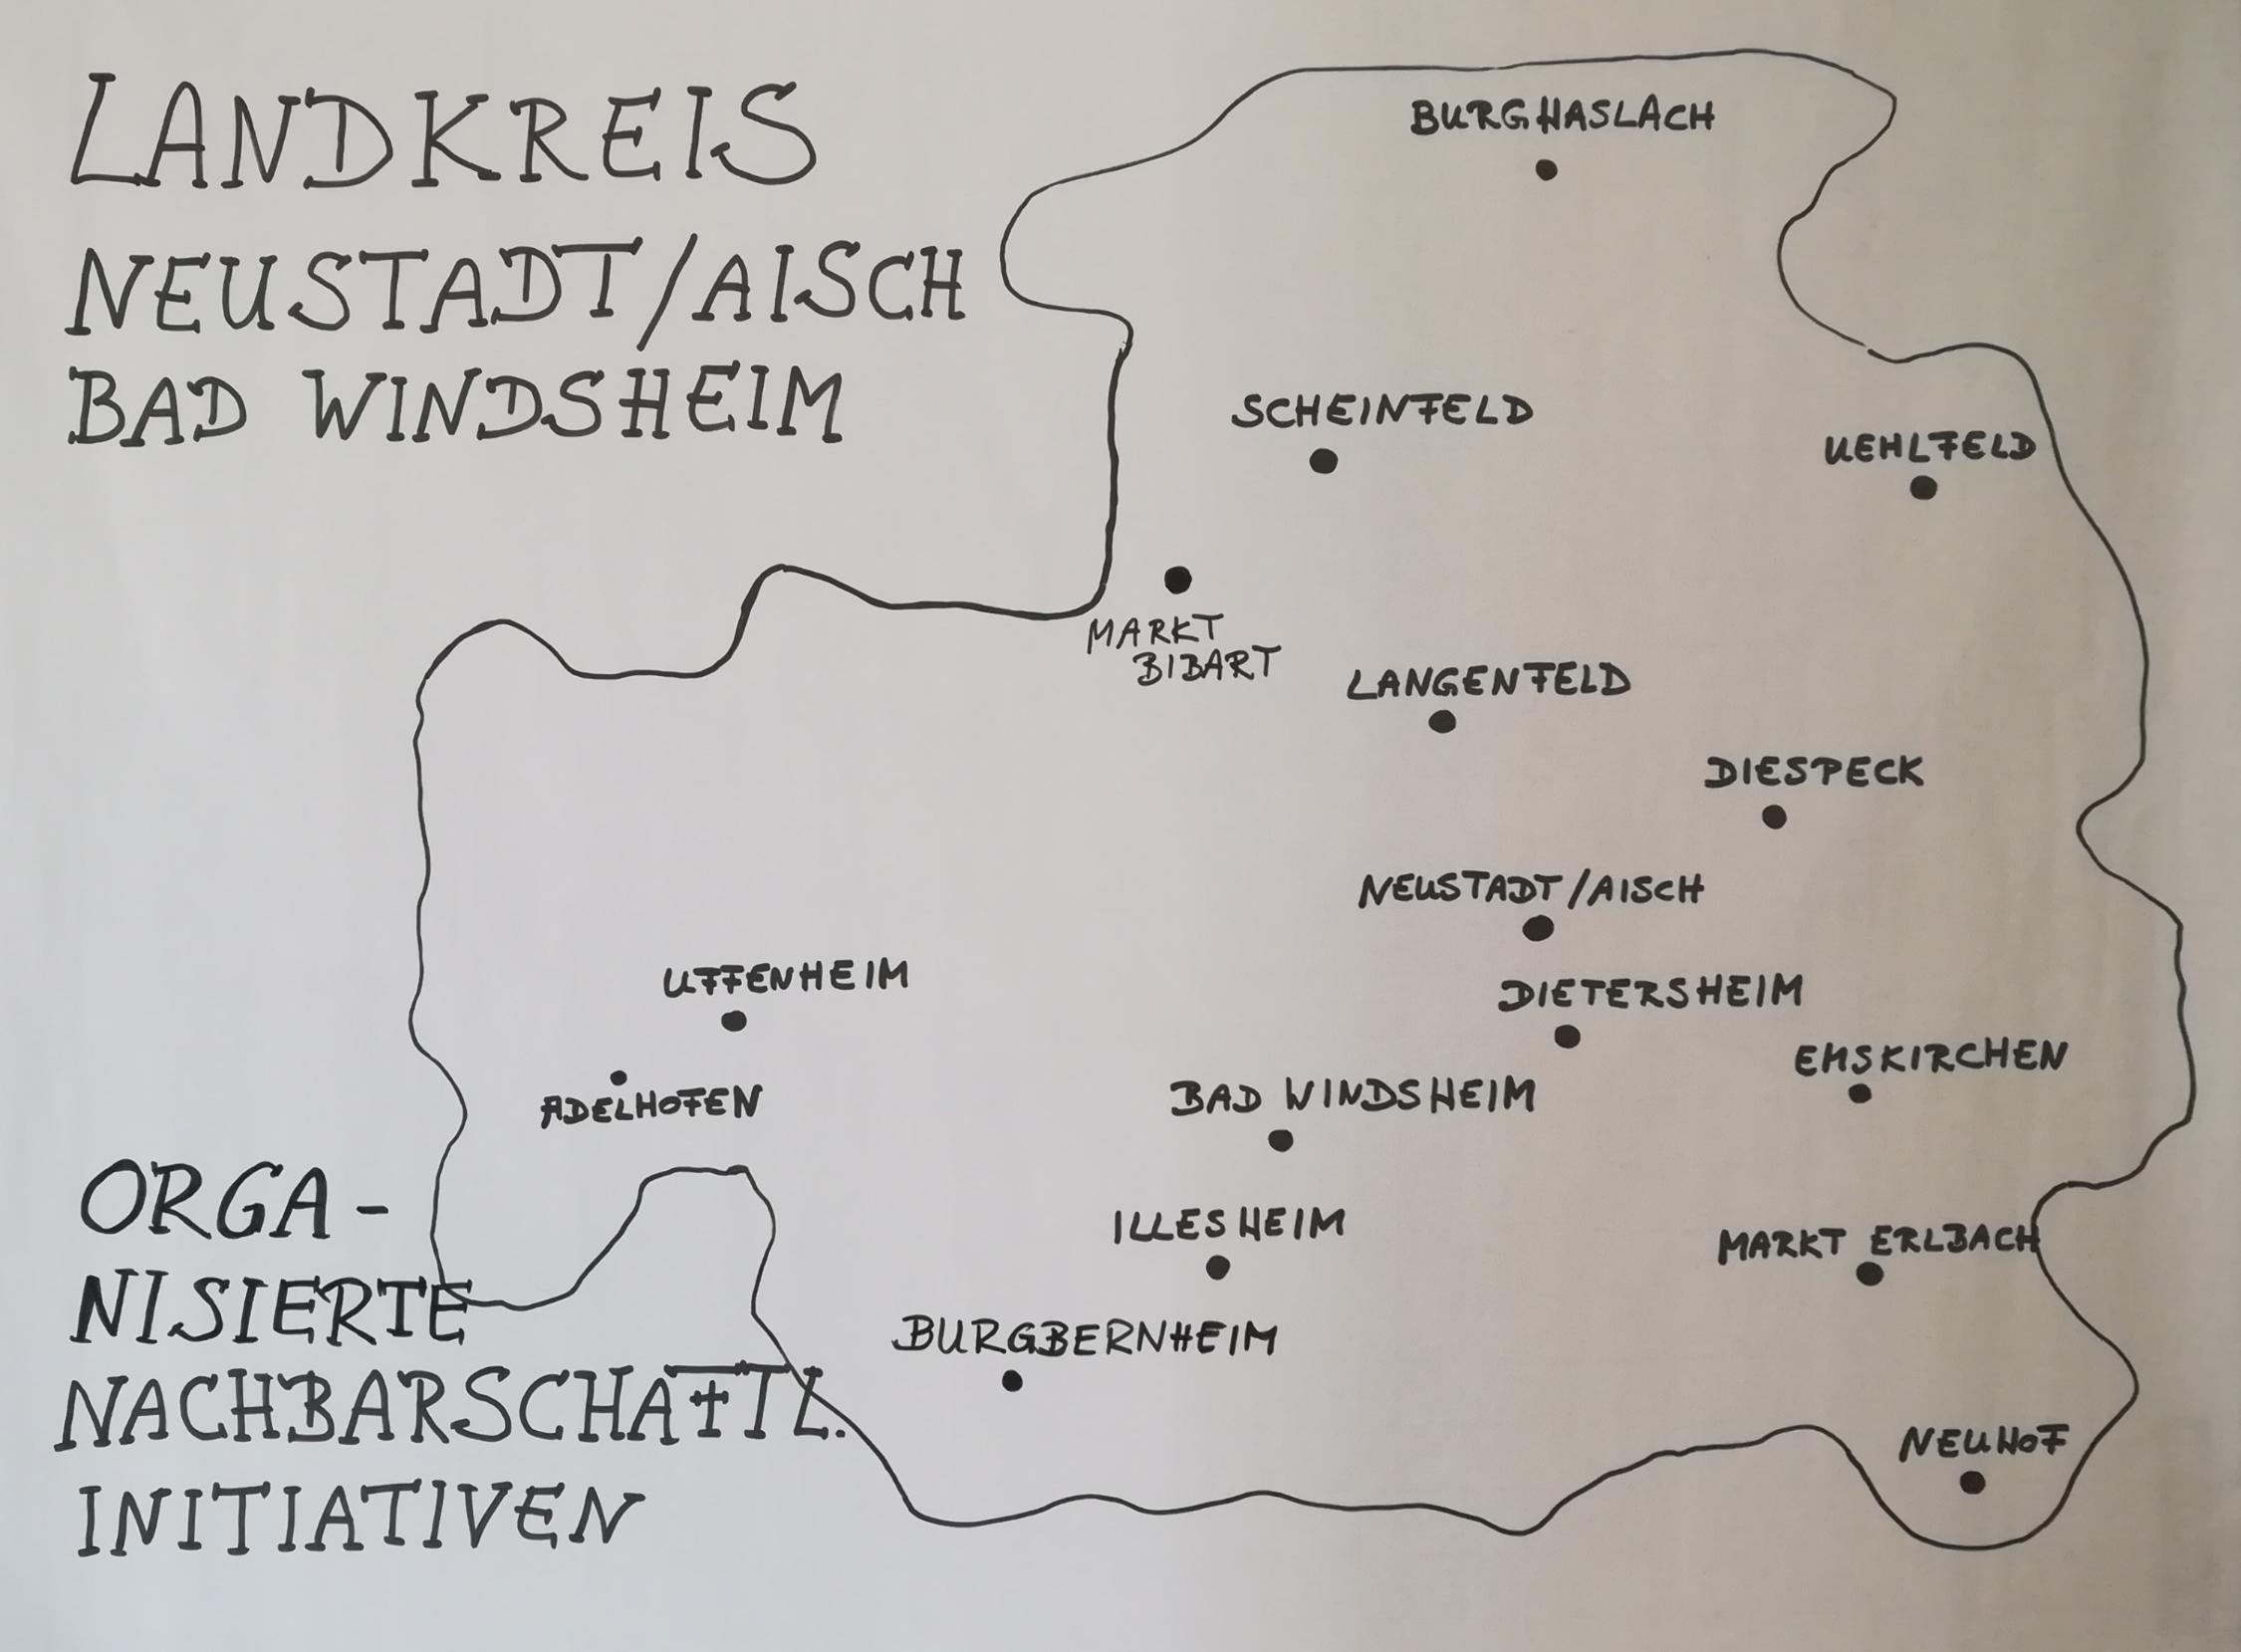 LANDKREIS
NEUSTADT/AISCH
BAD WINDSHEIM
BURGHASLACH
SCHEINFELD
UEHLFELD
MARKT
BIBART
LANGENFELD
DIESPECK
NEUSTADT/AISCH
UFFENHEIM
DIETERSHEIM
EMSKIRCHEN
ADELHOFEN
BAD WINDSHEIM
ILLESHEIM
MARKT ERLBACH
BURGBERNHEIM
NEUHOF
ORGA-
NISIERTE
NACHBARSCHAFTL.
INITIATIVEN